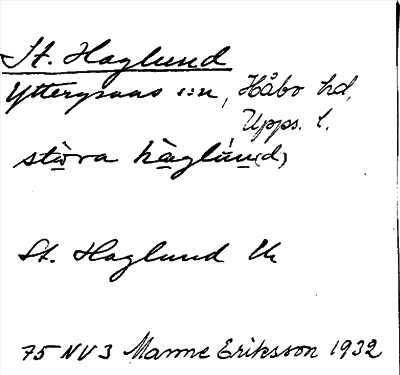 St. Haglund
Yttergrans s:n, Håbo hd,
Upps. l.
stòra hàglùn(d)
St. Haglund Uk
75 NV 3 Manne Eriksson 1932